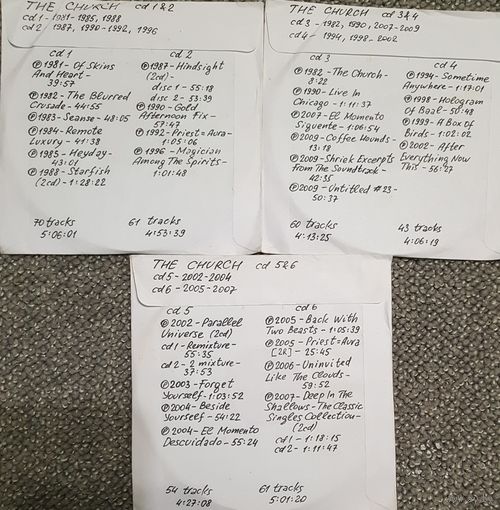 THE CHURCH cd 1&2
cd 1 - 1981-1985, 1988
cd 2 - 1987, 1990-1992, 1996
cd 1
Ⓟ 1981 - Of Skins
And Heart -
39:57
Ⓟ 1982 - The Blurred
Crusade - 44:55
Ⓟ 1983 - Seanse - 48:05
Ⓟ 1984 - Remote
Luxury - 41:38
Ⓟ 1985 - Heyday -
43:01
Ⓟ 1988 - Starfish
(2cd) - 1:28:22
70 tracks
5:06:01
cd 2
Ⓟ 1987 - Hindsight
(2cd) -
disc 1 - 55:18
disc 2 - 53:39
Ⓟ 1990 - Gold
Afternoon Fix -
57:47
Ⓟ 1992 - Priest = Aura -
1:05:06
Ⓟ 1996 - Magician
Among The Spirits -
1:01:48
61 tracks
4:53:39
THE CHURCH cd 3&4
cd 3 - 1982, 1990, 2007-2009
cd 4 - 1994, 1998-2002
cd 3
Ⓟ 1982 - The Church -
8:22
Ⓟ 1990 - Live In
Chicago - 1:11:37
Ⓟ 2007 - El Momento
Siguente - 1:06:54
Ⓟ 2009 - Coffee Hounds -
13:18
Ⓟ 2009 - Shriek Excerpts
from The Soundtrack -
42:35
Ⓟ 2009 - Untitled #23 -
50:37
60 tracks
4:13:25
cd 4
Ⓟ 1994 - Sometime
Anywhere - 1:17:01
Ⓟ 1998 - Hologram
Of Baal - 50:48
Ⓟ 1999 - A Box of
Birds - 1:02:02
Ⓟ 2002 - After
Everything Now
This - 56:27
43 tracks
4:06:19
THE CHURCH cd 5&6
cd 5 - 2002-2004
cd 6 - 2005-2007
cd 5
Ⓟ 2002 - Parallel
Universe (2cd)
cd 1 - Remixture -
55:35
cd 2 - 2 mixture -
37:53
Ⓟ 2003 - Forget
Yourself - 1:03:52
Ⓟ 2004 - Beside
Yourself - 54:22
Ⓟ 2004 - El Momento
Descuidado - 55:24
54 tracks
4:27:08
cd 6
Ⓟ 2005 - Back With
Two Beasts - 1:05:39
Ⓟ 2005 - Priest = Aura
[2k] - 25:45
Ⓟ 2006 - Uninvited
Like The Clouds -
59:52
Ⓟ 2007 - Deep In The
Shallows - The Classic
Singles Collection -
(2cd)
cd 1 - 1:18:15
cd 2 - 1:11:47
61 tracks
5:01:20